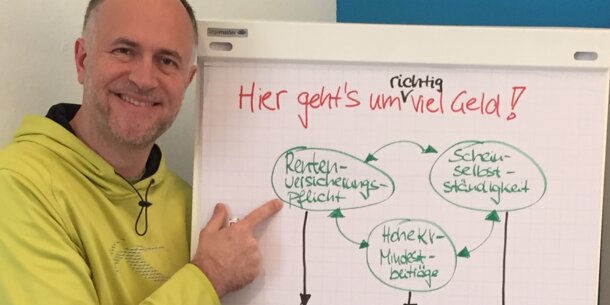 Hier geht's um richtig viel Geld!
Renten-
versicherungs-
pflicht
Schein-
selbst-
ständigkeit
Hohe KV-
Mindest-
beiträge